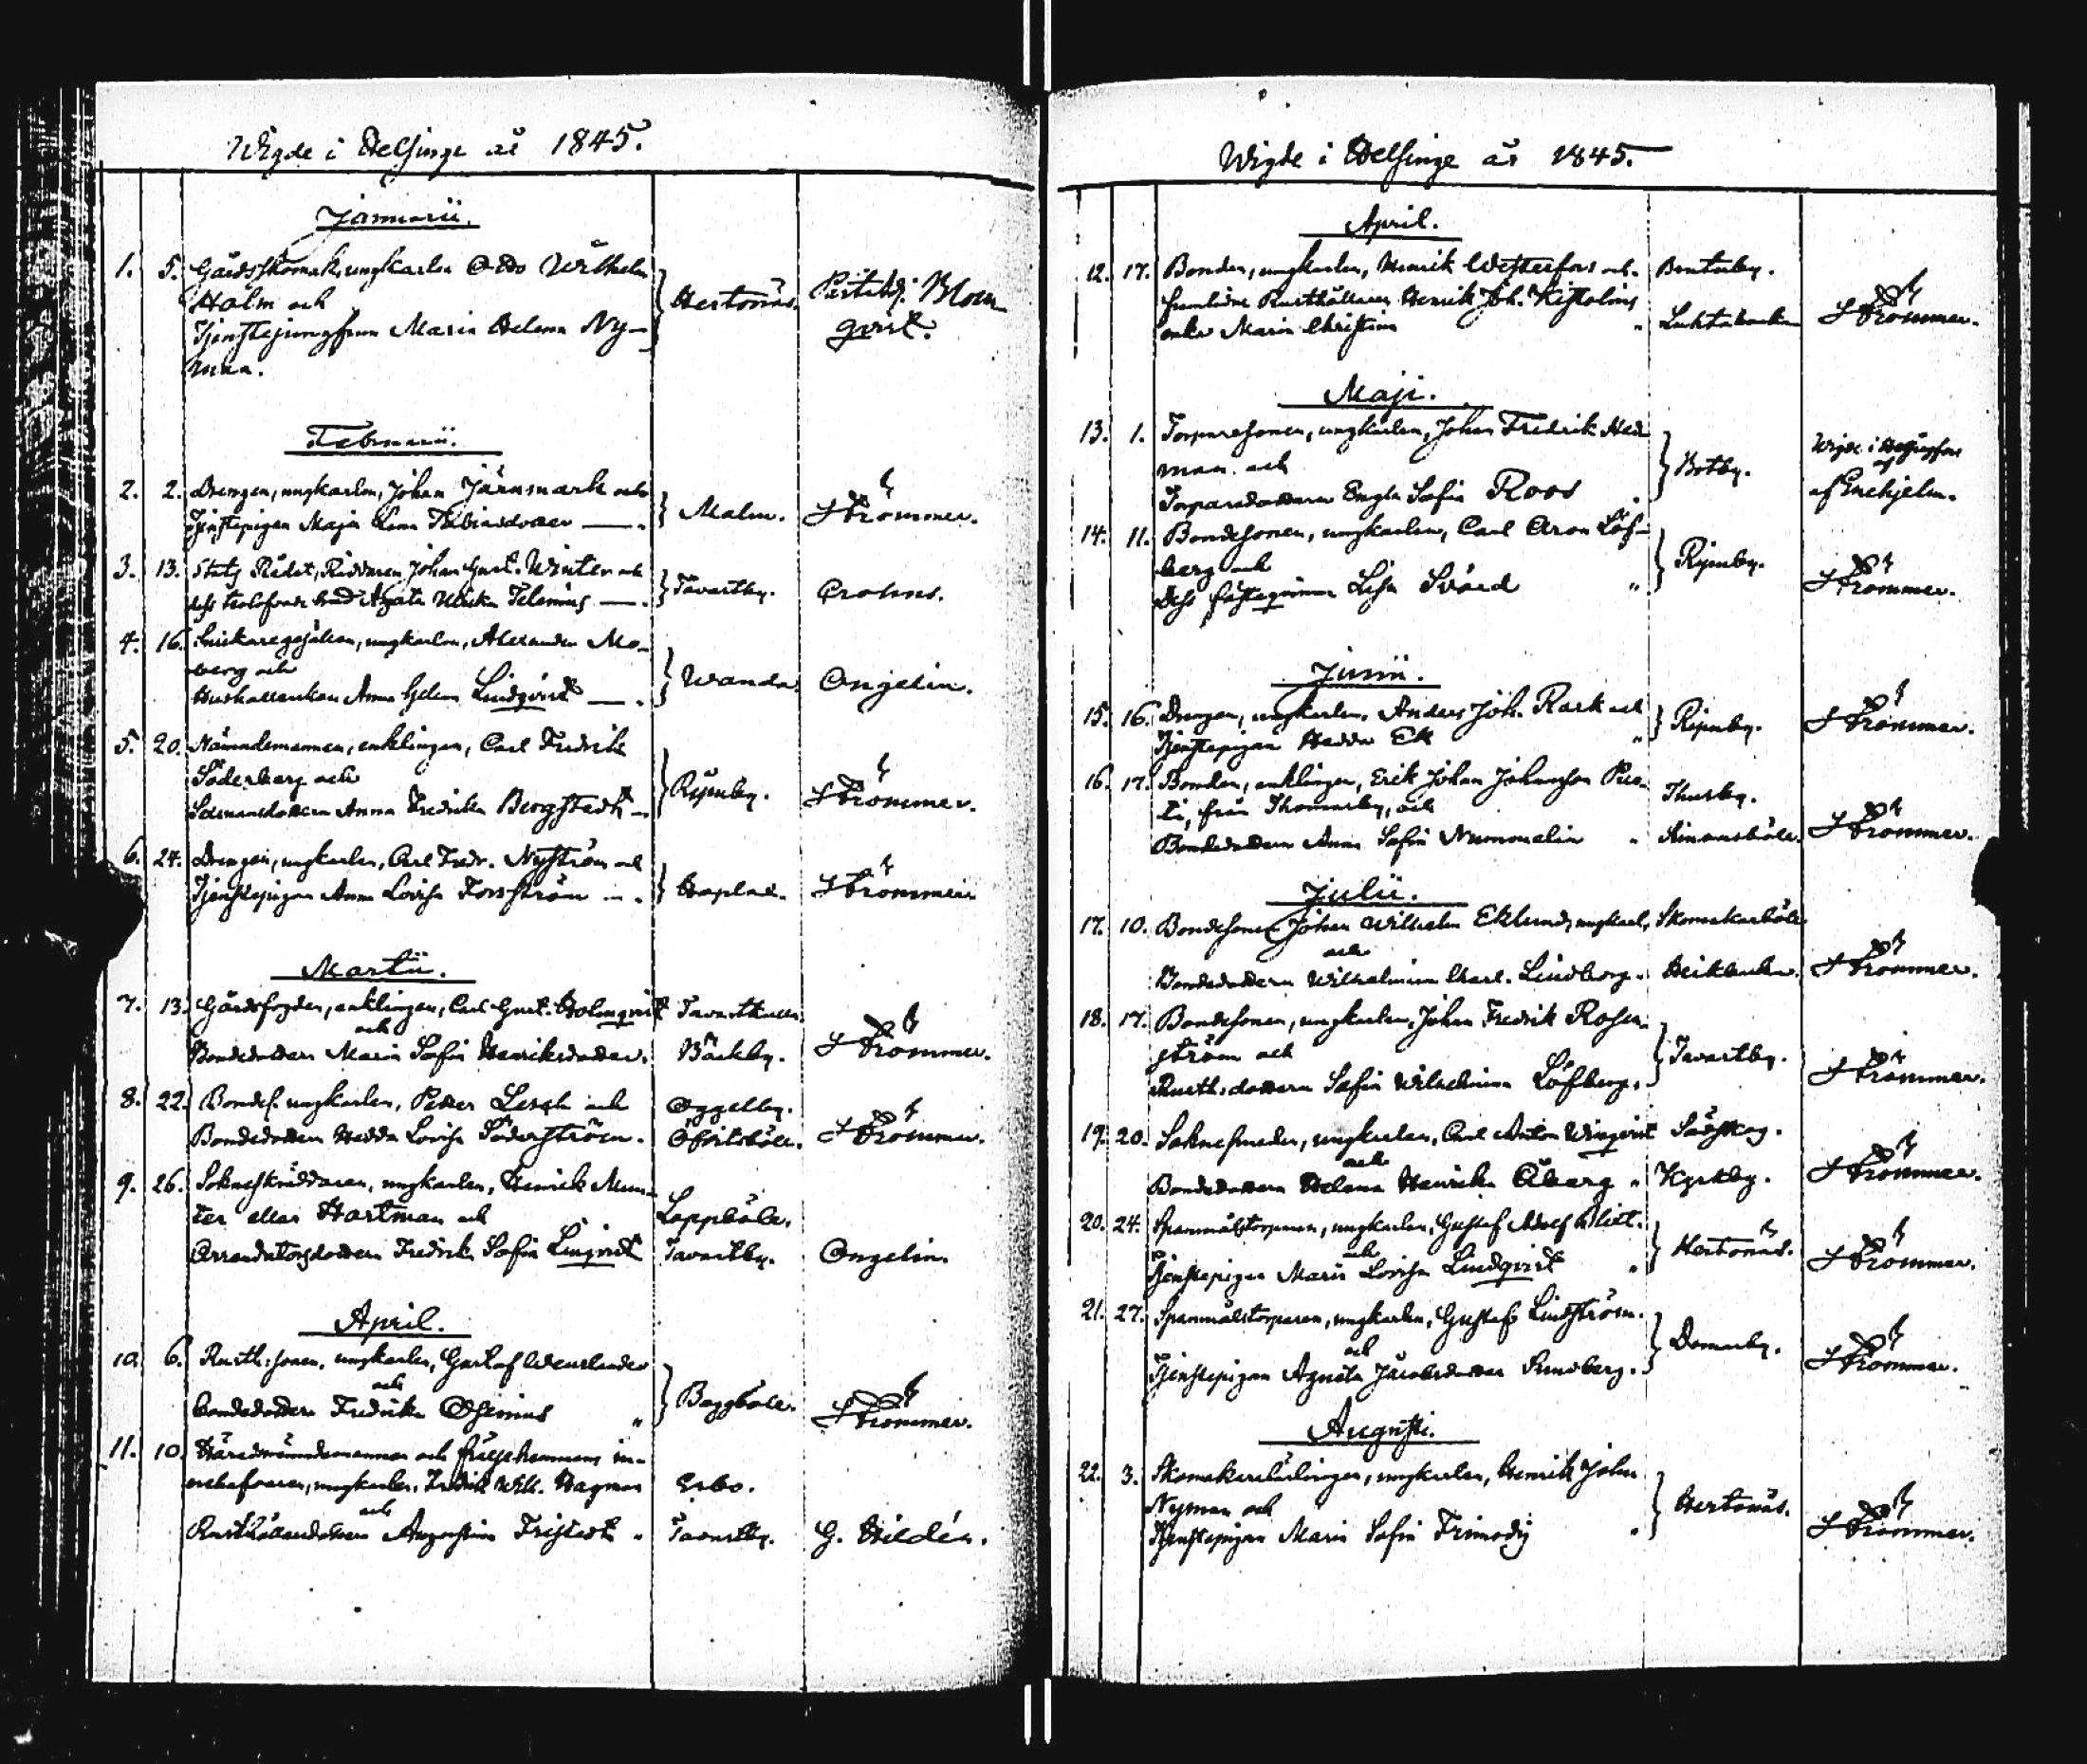 Wigde i Helsinge år 1845.
Januarii.
1. 5. Gårdsskomak. ungkarlen Otto Wilhelm
Holm och
Tjenstejungfrun Maria Helena Ny-
man.
Hertonäs.
Blom-
qvist.
Februarii.
2. 2. Drengen, ungkarlen, Johan Järnmark och
Tjenstepigan Maja Lena
Malm. Strömmer.
3. 13. Stats Rådet, Riddaren Johan Gust. Winter och
dess Agata Ulrika Telenius
Tavastby. Crohns.
4. 16. Snickaregesällen, ungkarlen, Alexander Mo-
berg och
Hushållerskan Anna Helena Lindqvist
Wanda. Ongelin.
5. 20. Nämndemannen, enklingen, Carl Fredrik
Söderberg och
Anna Fredrika Bergstedt
Ripuby. Strömmer.
6. 24. Drengen, ungkarlen, Carl Fredr. Nyström och
Tjenstepigan Anna Lovisa Forsström
Hoplax. Strömmer.
Martii.
7. 13. Gårdsfogden, enklingen, Carl Gust. Holmqvist
och
Bondedottern Maria Sofia Henriksdotter.
Bäckby. Strömmer.
8. 22. Bondes. ungkarlen, Petter Lesch och Oggelby.
Bondedottern Hedda Lovisa Söderström. Ofvitsböle. Strömmer.
9. 26. Sokneskräddaren, ungkarlen, Henrik Mun-
ter eller Hartman och Lappböle.
Arrendatorsdottern Fredrika Sofia Linqvist Tavastby. Ongelin.
April.
10. 6. Rusth:sonen, ungkarlen, Gustaf Wenlander
och
bondedottern Fredrika Osenius "
Baggböle. Strömmer.
11. 10. Häradsnämndemannen och frälsehemmans in-
nehafvaren, ungkarlen, Fredrik Wilh. Hagman Esbo.
och
Rusthållaredottern Augustina Fristedt " Tavastby. G. Hildén.
Wigde i Helsinge år 1845.
April.
12. 17. Bonden, ungkarlen, Henrik Westerfors och
framlidne Rusthållaren Henrik Joh.
enka Maria Christina "
Luktabacka Strömmer.
Maji.
13. 1. Torparesonen, ungkarlen, Johan Fredrik Hed-
man och
Torparedottern Engla Sofia Roos "
Botby.
Wigde i Helsingfors
af
af Enehjelm.
14. 11. Bondesonen, ungkarlen, Carl Aron Löf-
berg och
Dess fästeqvinna Lisa Svärd "
Ripuby. Strömmer.
Junii.
15. 16. Drengen, ungkarlen, Anders Joh. Rask och
Tjenstepigan Hedda Ek "
Ripuby. Strömmer.
16. 17. Bonden, enklingen, Erik Johan Johansson
från Thomasby, och
Bondedottern Anna Sofia Nummelin "
Thusby.
Simonsböle. Strömmer.
Julii.
17. 10. Bondesonen Johan Wilhelm Eklund, ungkarl, Skomakarböle
och
Bondedottern Wilhelmina Charl. Lindberg. Biskbacka. Strömmer.
18. 17. Bondesonen, ungkarlen, Johan Fredrik Rosen-
ström och
Rusth:dottern Sofia Wilhelmina Löfberg.
Tavastby. Strömmer.
19. 20. Soknesmeden, ungkarlen, Carl Anton Winqvist Sårskog.
och
Bondedottern Helena Henrika Åberg " Kyrkby. Strömmer.
20. 24. Spannmålstorparen, ungkarlen, Gustaf Adolf
och
Tjenstepigan Maria Lovisa Lindqvist "
Hertonäs. Strömmer.
21. 27. Spannmålstorparen, ungkarlen, Gustaf Lindström.
och
Tjenstepigan Agneta Jacobsdotter Sundberg.
Domarby. Strömmer.
Augusti.
22. 3. Skomakarelärlingen, ungkarlen, Henrik Johan
Nyman och
Tjenstepigan Maria Sofia Frimodig "
Hertonäs. Strömmer.